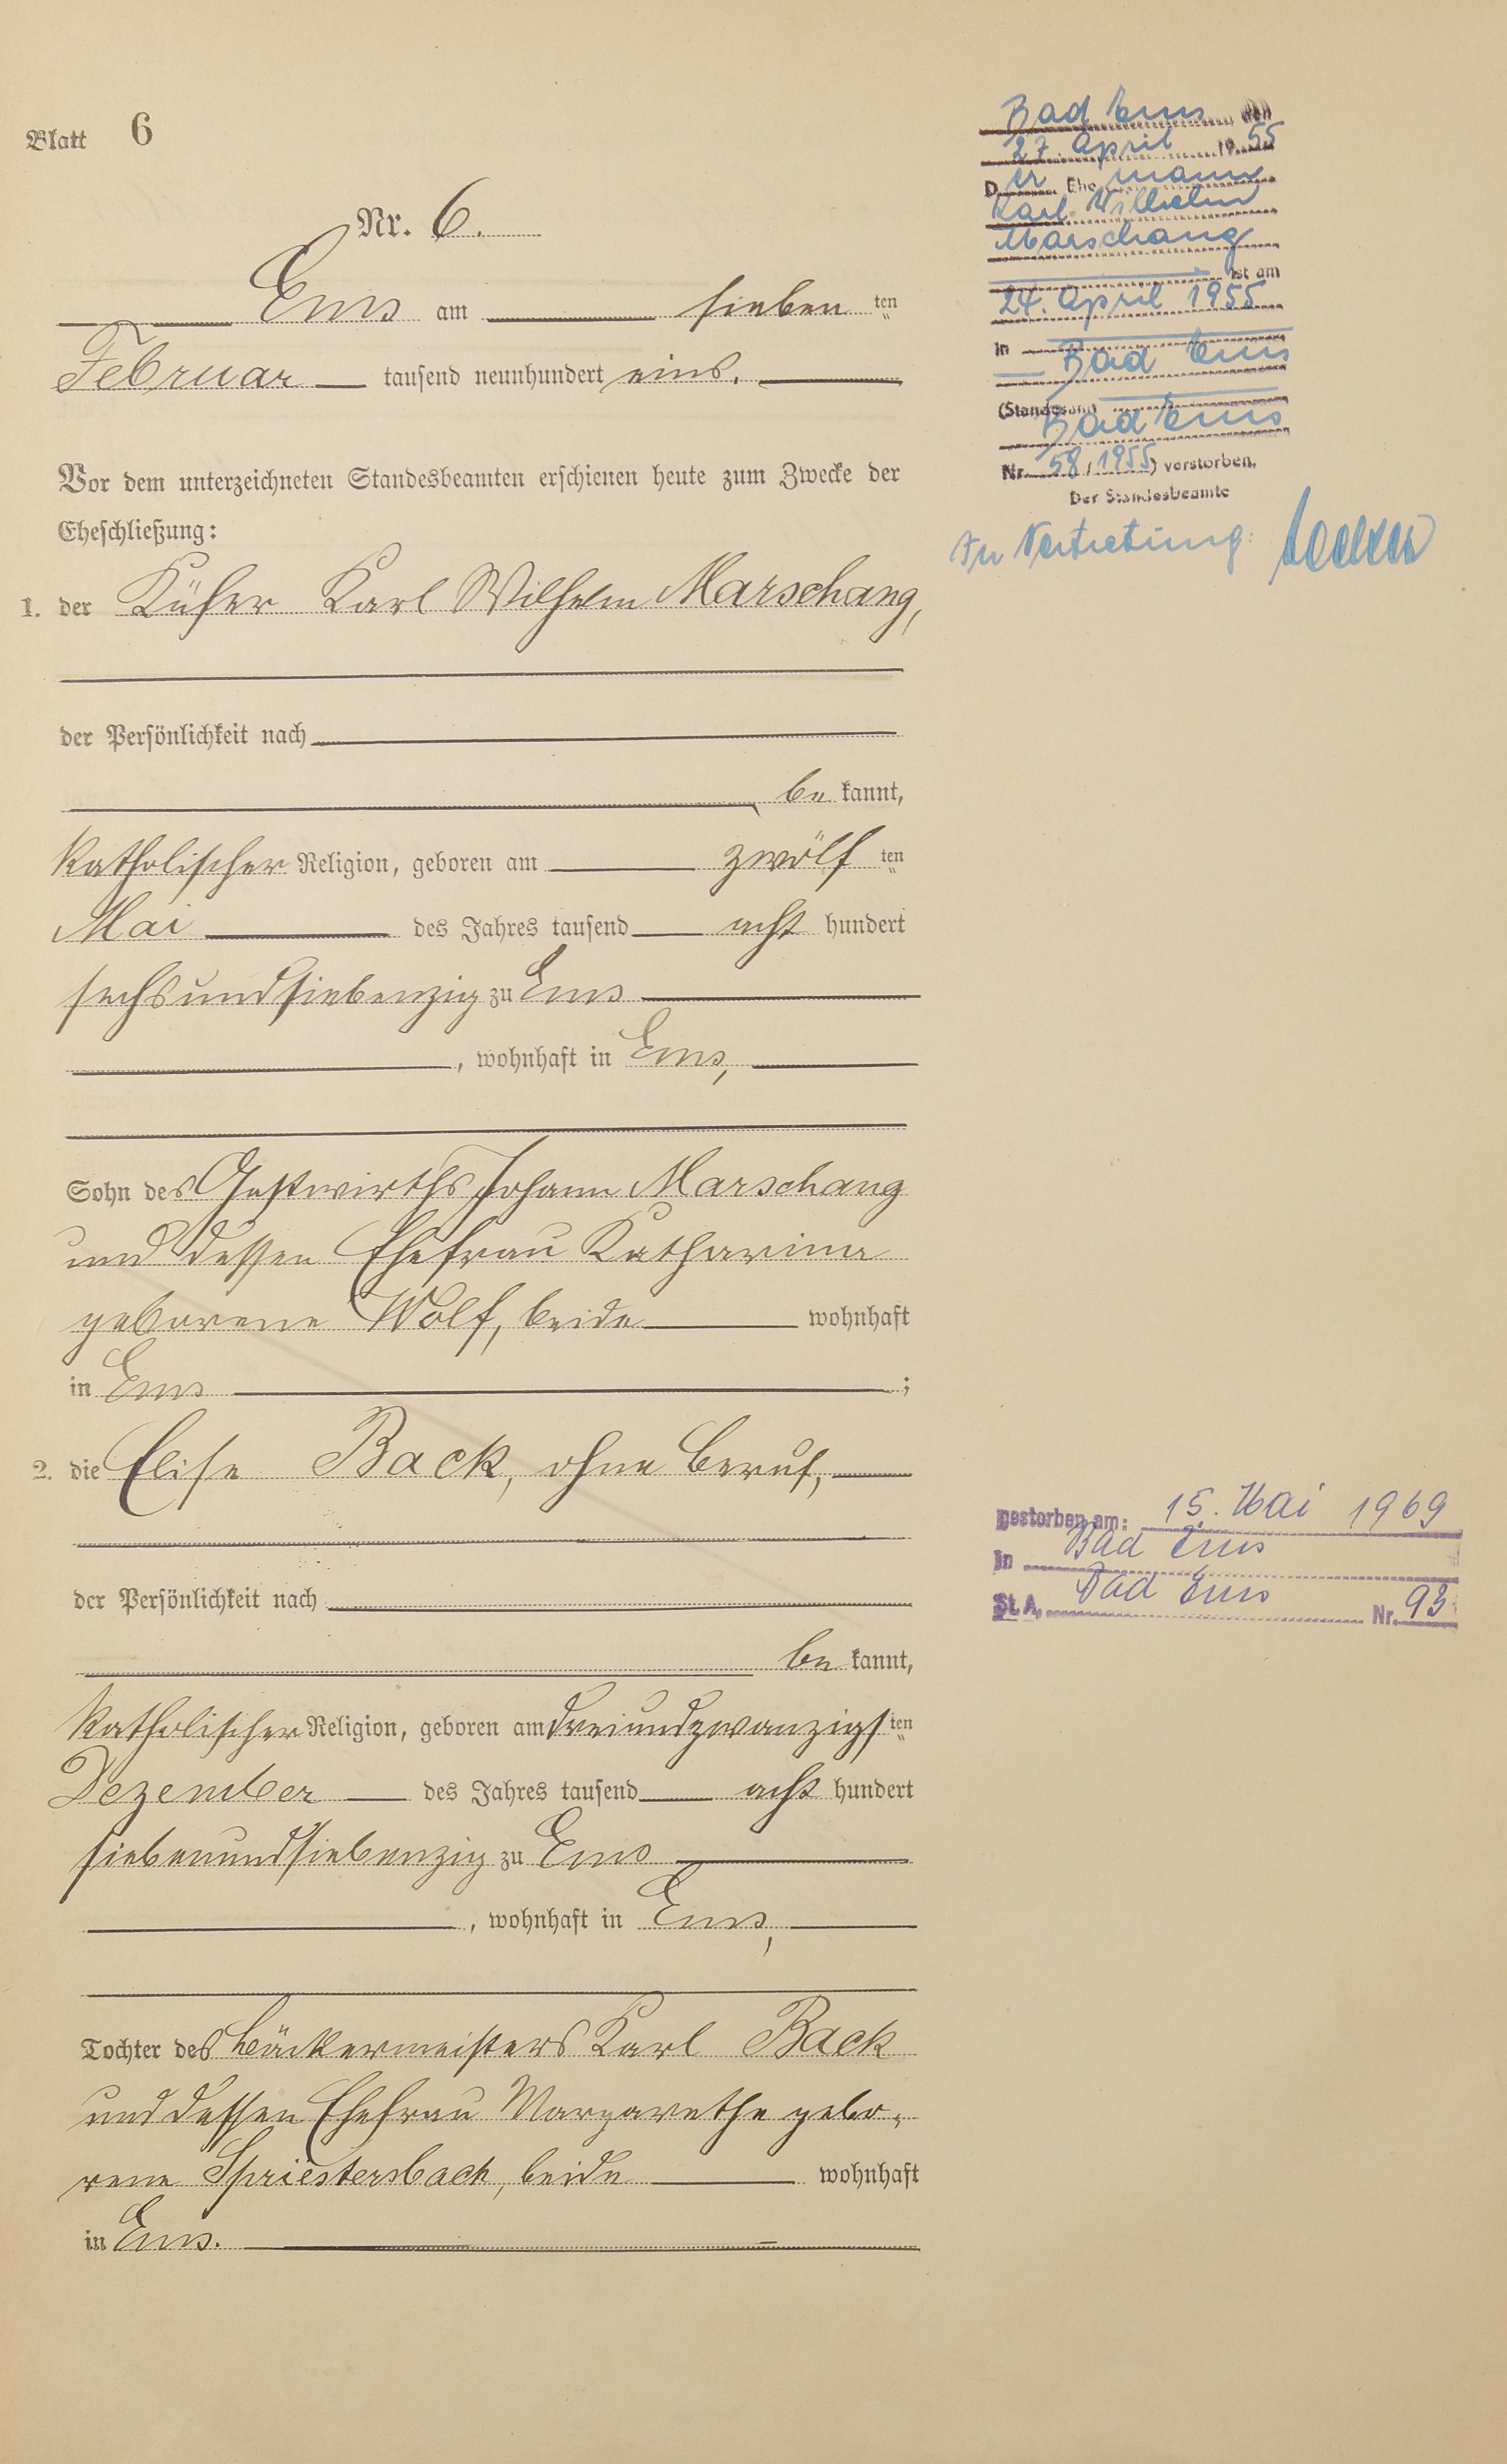 Blatt 6
Nr. 6.
Ems am sieben ten
Februar tausend neunhundert eins.
Vor dem unterzeichneten Standesbeamten erschienen heute zum Zwecke der
Eheschließung:
1. der Küfer Karl Wilhelm Marschang,
der Persönlichkeit nach
be kannt,
katholischer Religion, geboren am zwölf ten
Mai des Jahres tausend acht hundert
sechsundsiebenzig zu Ems
, wohnhaft in Ems,
Sohn des Gastwirths Johann Marschang
und dessen Ehefrau Katharina
geborene Wolf, beide wohnhaft
in Ems ;
2. die Elise Back, ohne Beruf,
der Persönlichkeit nach
be kannt,
katholischer Religion, geboren am dreiundzwanzigs ten
Dezember des Jahres tausend acht hundert
siebenundsiebenzig zu Ems
, wohnhaft in Ems,
Tochter des Bäckermeisters Karl Back
und dessen Ehefrau Margarethe gebo-
rene Spriestersbach, beide wohnhaft
in Ems.
Bad Ems, den
27. April 1955
Der Ehemann
Karl Wilhelm
Marschang
ist am
24. April 1955
in
Bad Ems
(Standesamt
Bad Ems
Nr. 58/1955) verstorben.
Der Standesbeamte
In Vertretung:
gestorben am: 15. Mai 1969
in Bad Ems
St. A. Bad Ems Nr. 93